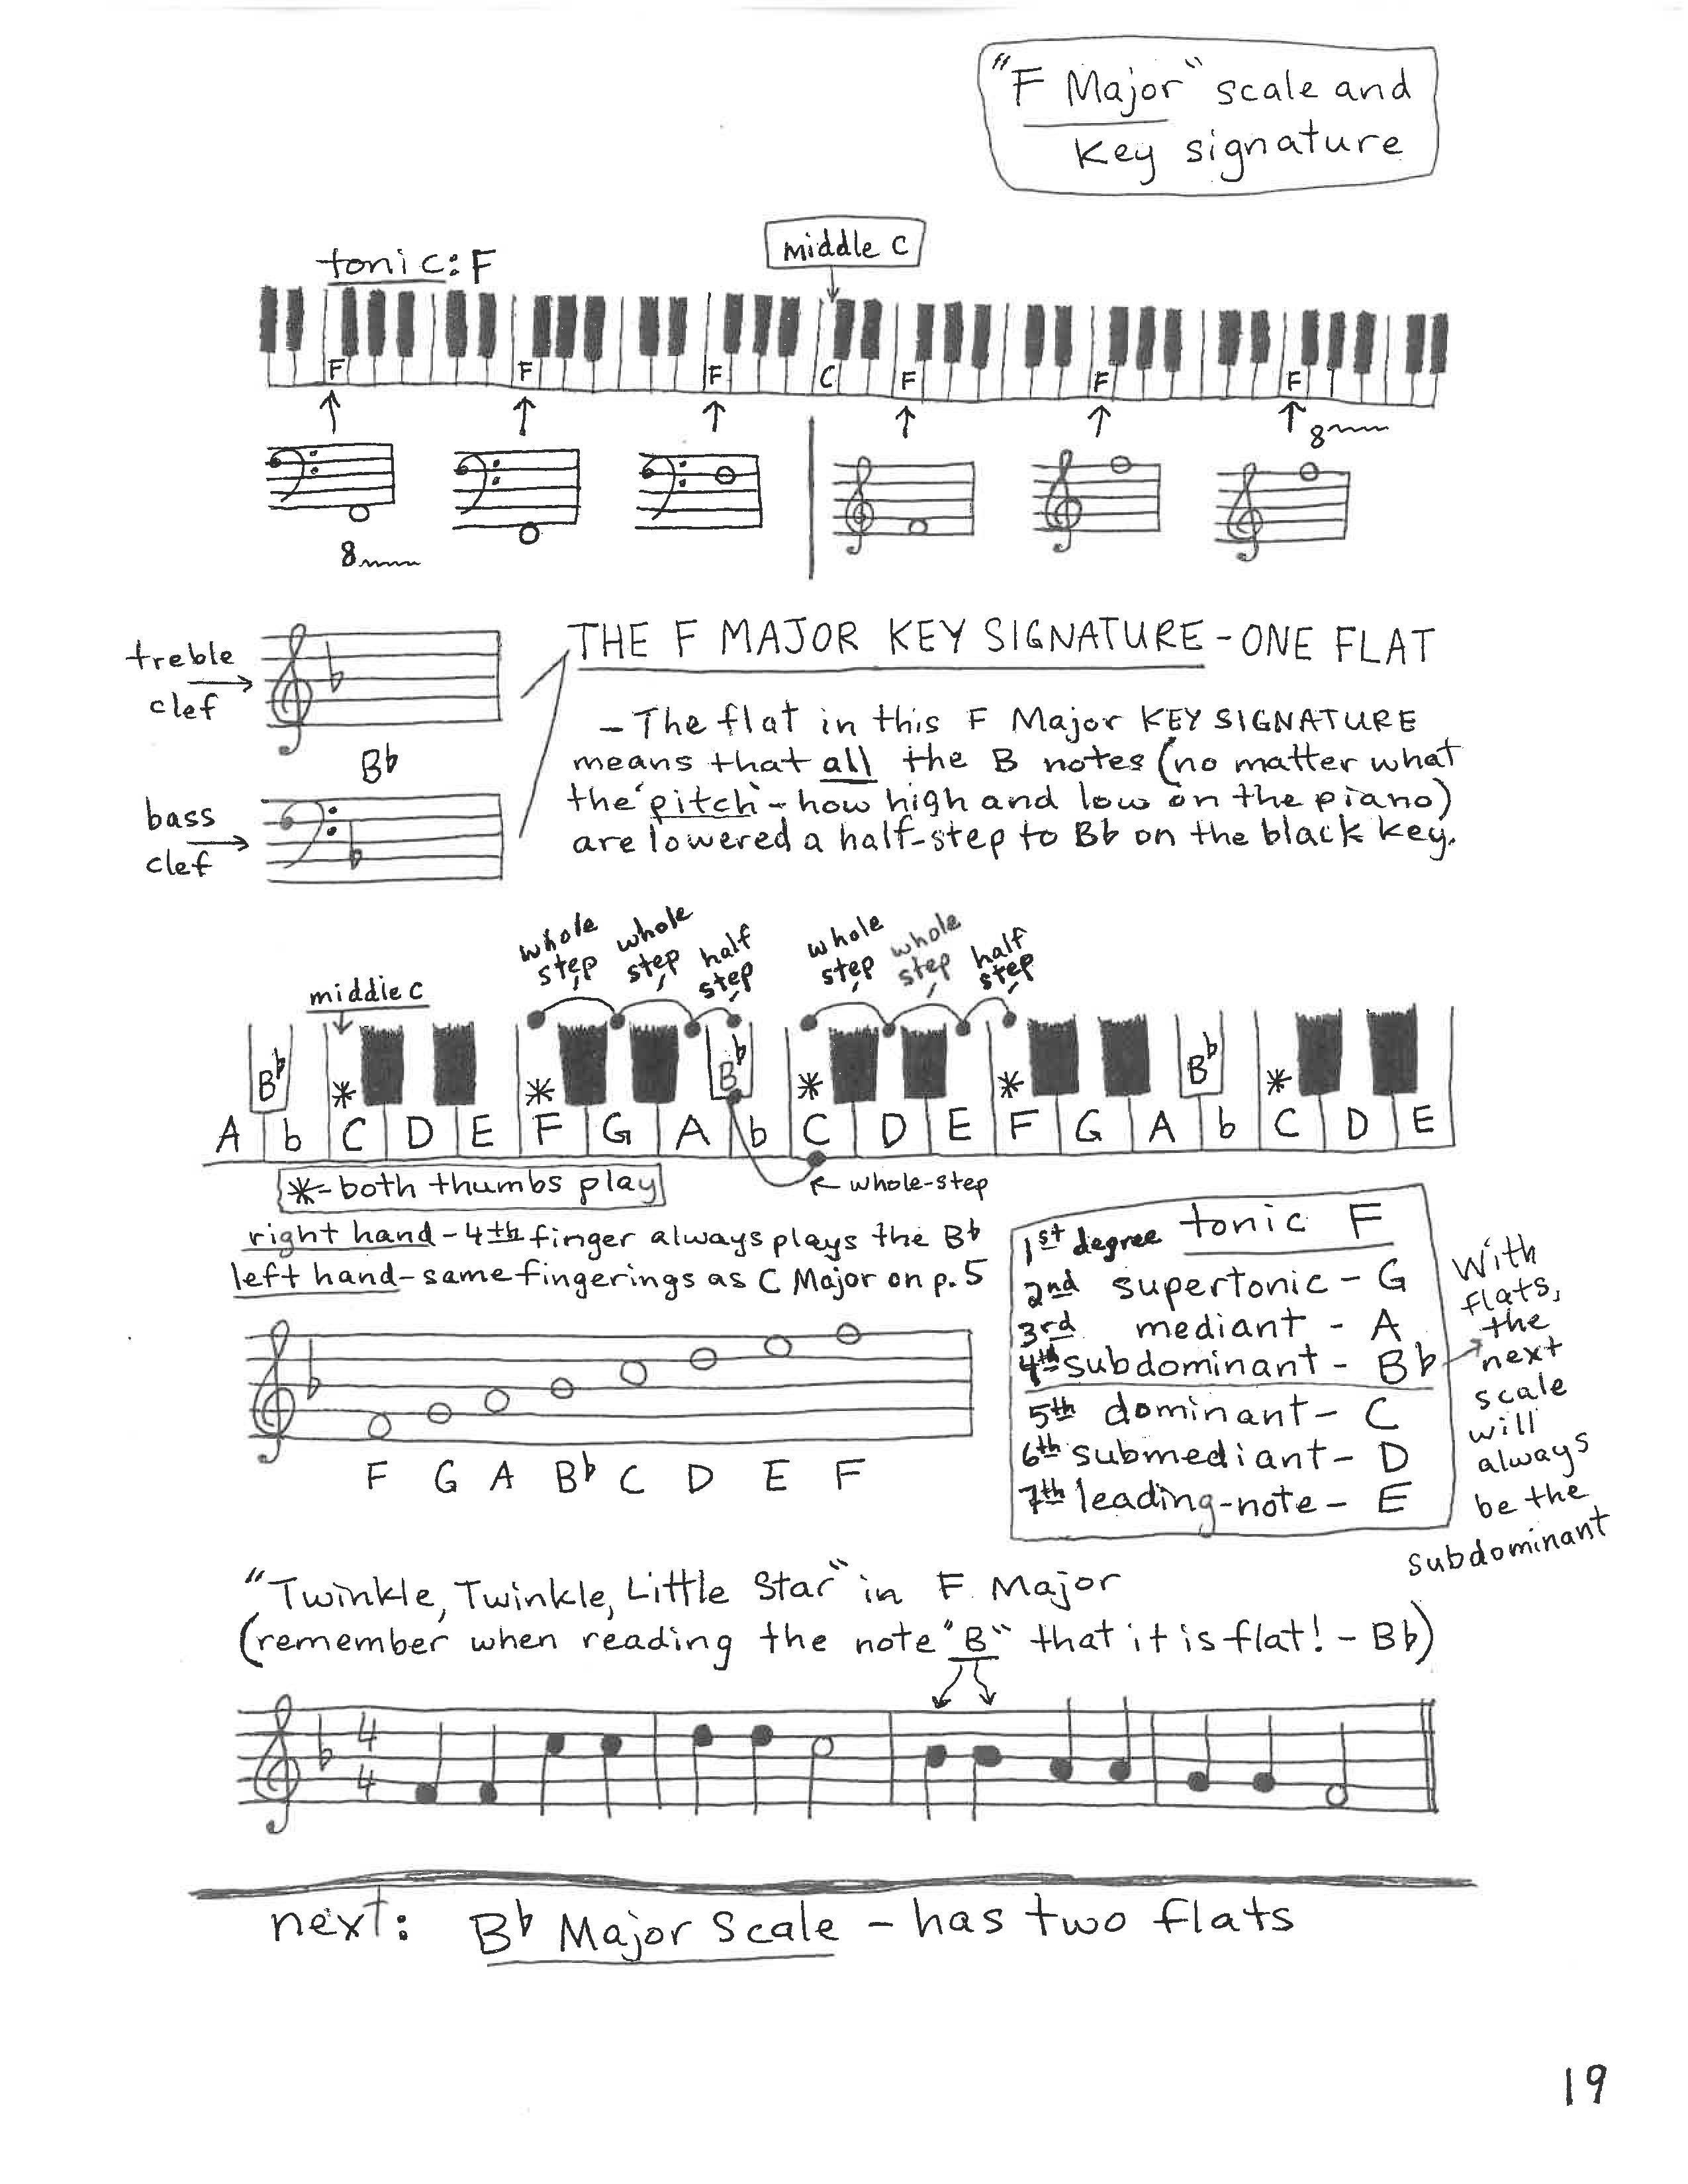 "F Major" scale and
Key signature
middle C
tonic: F
F F F C F F F
8
8
treble
clef
B♭
bass
clef
THE F MAJOR KEY SIGNATURE - ONE FLAT
- The flat in this F Major KEY SIGNATURE
means that all the B notes (no matter what
the 'pitch' - how high and low on the piano)
are lowered a half-step to B♭ on the black key.
whole step whole step half step whole step whole step half step
middle C
B♭ B♭ B♭
* * * * *
A b C D E F G A b C D E F G A b C D E
*-both thumbs play
whole-step
right hand - 4th finger always plays the B♭
left hand - same fingerings as C Major on p. 5
F G A B♭ C D E F
1st degree tonic F
2nd supertonic - G
3rd mediant - A
4th subdominant - B♭
5th dominant - C
6th submediant - D
7th leading-note - E
With
flats,
the
next
scale
will
always
be the
subdominant
"Twinkle, Twinkle, Little Star" in F Major
(remember when reading the note "B" that it is flat! - B♭)
4
4
next: B♭ Major Scale - has two flats
19